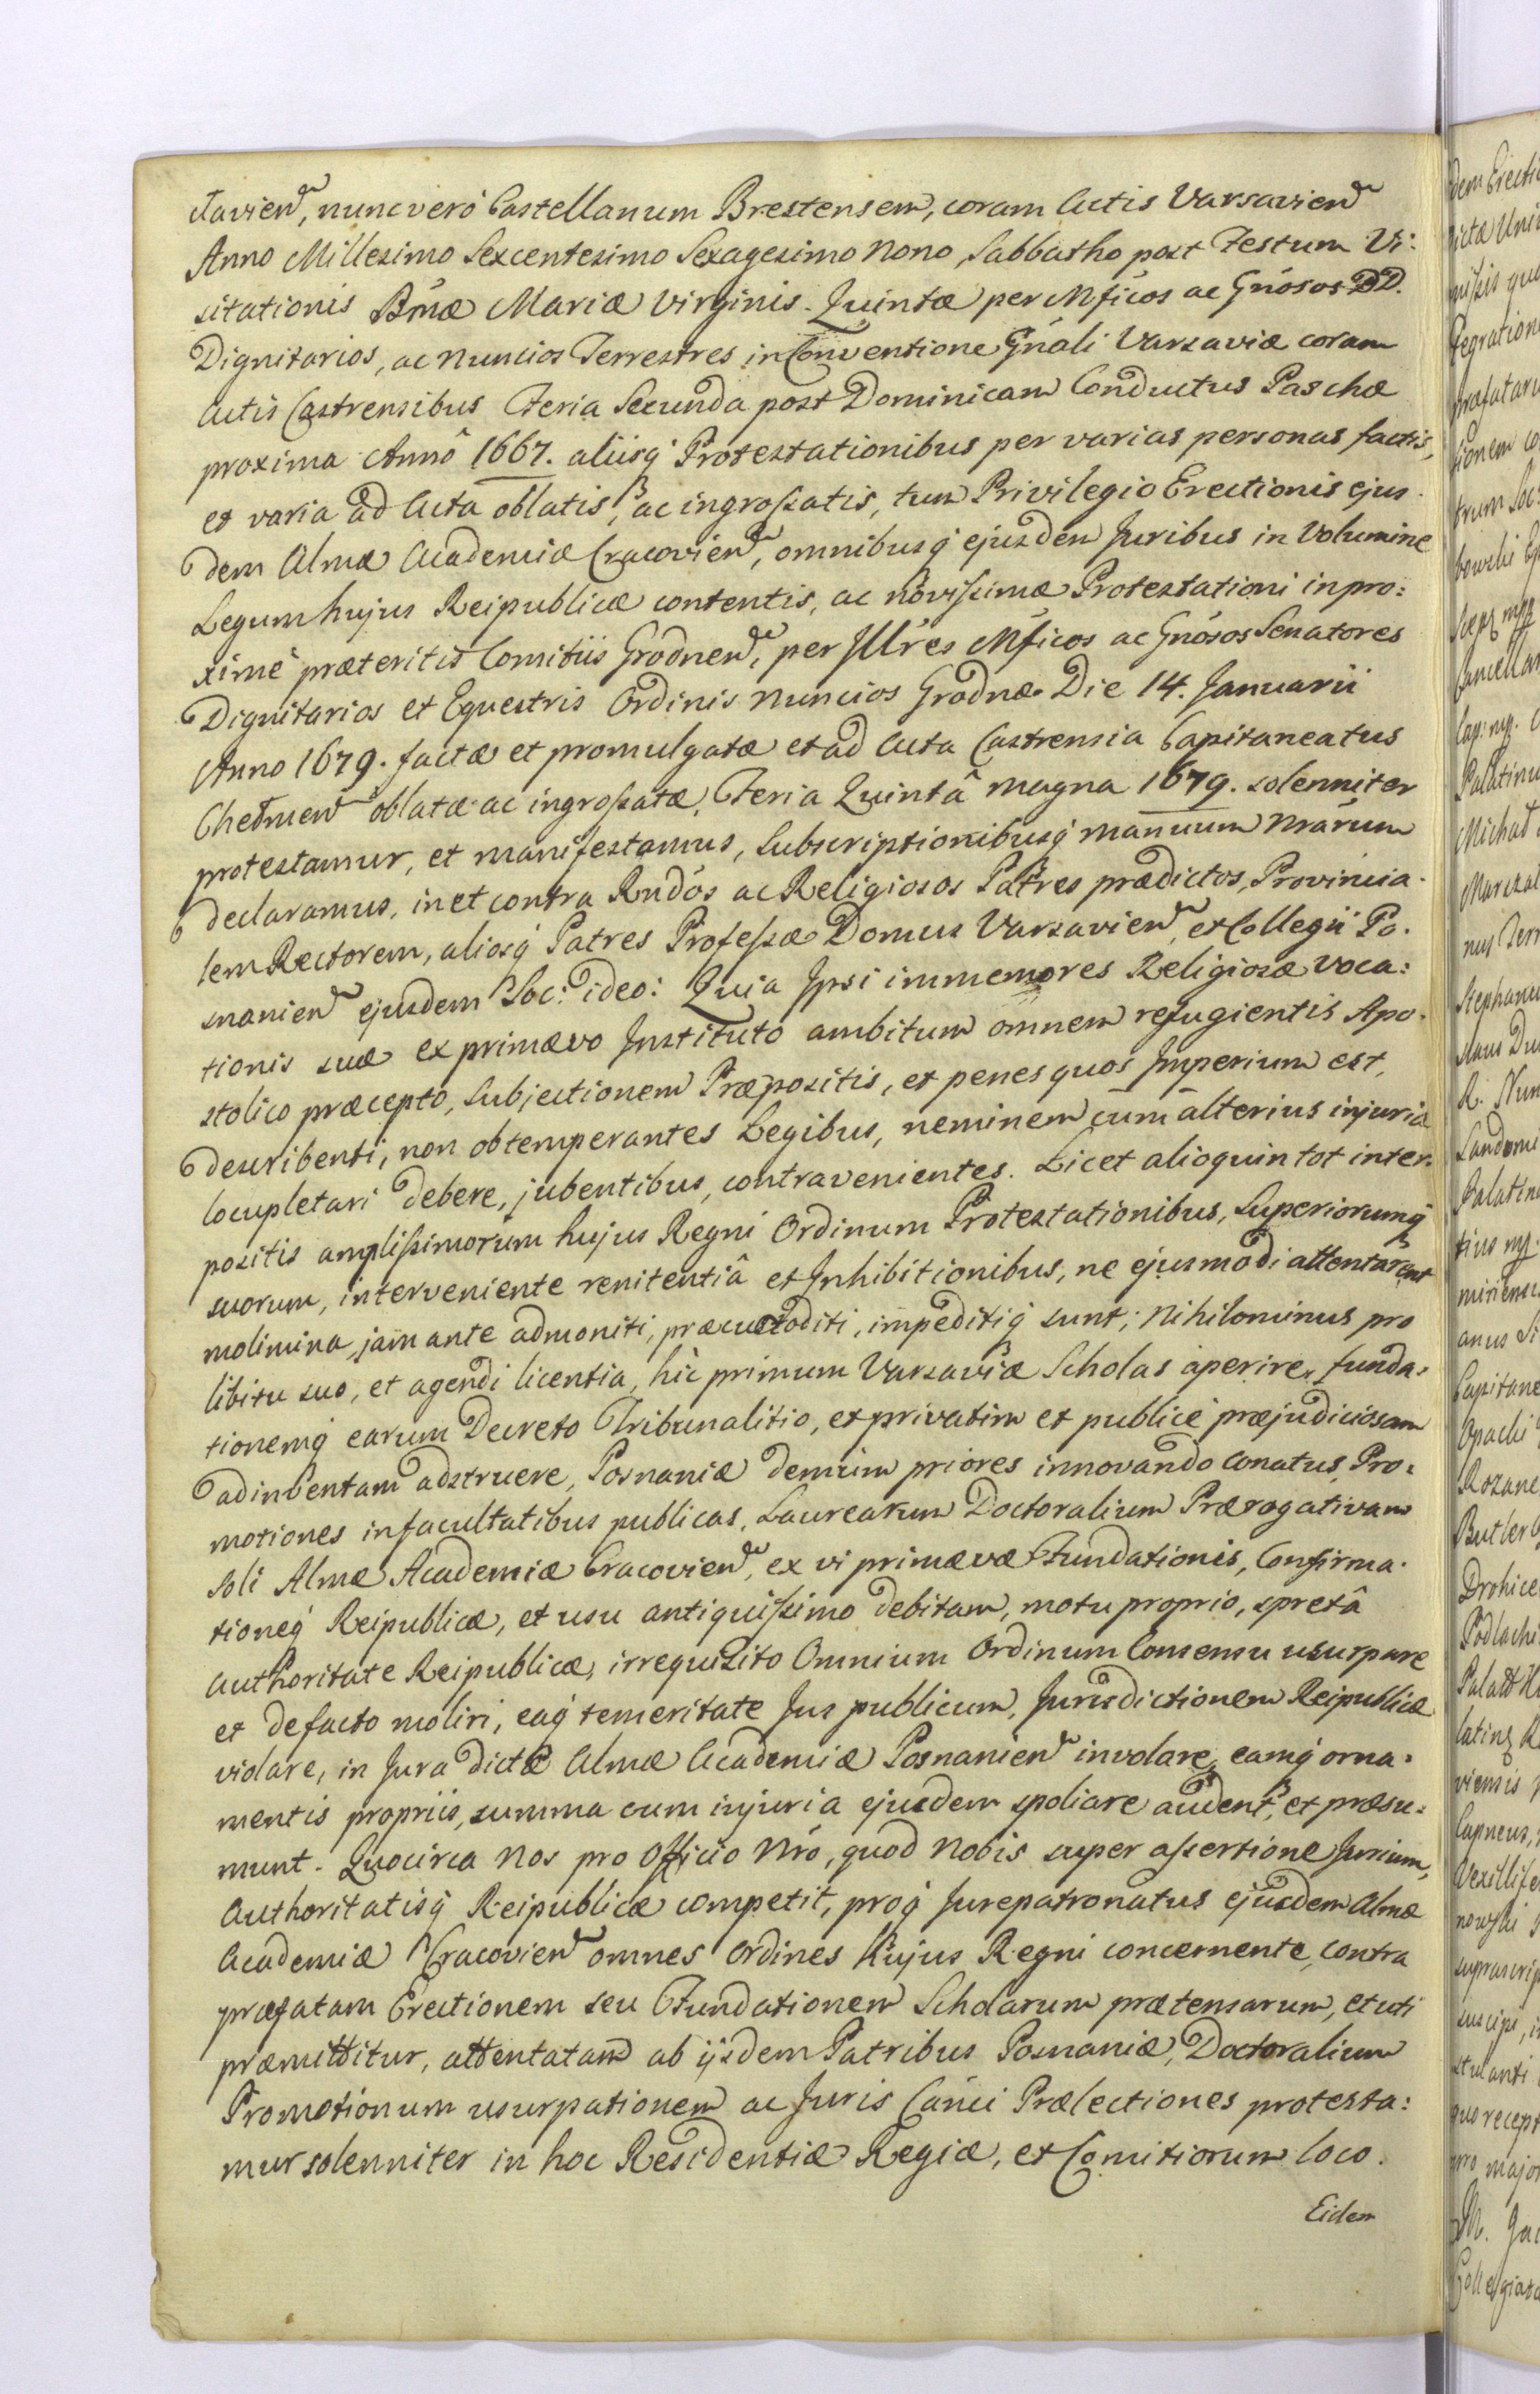 ctavien, nunc vero Castellanum Brestensem, coram Actis Varsavien
Anno Millesimo Sexcentesimo Sexagesimo Nono, Sabbatho post Festum Vi:
sitationis Bmæ Mariæ Virginis. Quintæ per Mficos ac Gnosos DD.
Dignitarios, ac Nuncios Terrestres in Conventione Gnali Varsaviæ coram
Actis Castrensibus Feria Secunda post Dominicam Conductus Paschæ
proxima Annô 1667. aliisq Protestationibus per varias personas factis,
et varia ad Acta oblatis, ac ingrossatis, tum Privilegio Erectionis ejus
dem Almæ Academiæ Cracovien, omnibusq ejusdem Juribus in Volumine
Legum hujus Reipublicæ contentis, ac novissimæ Protestationi in pro:
ximè præteritis Comitiis Grodnen, per Illres Mficos ac Gnosos Senatores
Dignitarios et Equestris Ordinis Nuncios Grodnæ Die 14. Januarii
Anno 1679. factæ et promulgatæ et ad Acta Castrensia Capitaneatus
Chełmen oblatæ ac ingrossatæ, Feria Quintâ magna 1679. solenniter
protestamur, et manifestamus, Subscriptionibusq manuum Nrarum
declaramus, in et contra Rndos ac Religiosos Patres prædictos, Provincia.
lem Rectorem, aliosq Patres Professæ Domus Varsavien, et Collegii Po.
snanien ejusdem Soc: ideo: Quia Ipsi immemores Religiosæ Voca:
tionis suæ ex primævo Instituto ambitum omnem refugientis Apo.
stolico præcepto, Subjectionem Præpositis, et penes quos Imperium est,
describenti, non obtemperantes Legibus, neminem cum alterius injuria
locupletari debere, jubentibus, contravenientes. Licet alioquin tot inter.
positis amplissimorum hujus Regni Ordinum Protestationibus, Superiorumq
suorum, interveniente renitentiâ et Inhibitionibus, ne ejusmodi attentarent
molimina, jam ante admoniti, præcustoditi, impeditiq sunt; Nihilominus pro
libitu suo, et agendi licentia, hîc primum Varsaviæ Scholas aperire, funda:
tionemq earum Decreto Tribunalitio, et privatim et publicè præjudiciosam
adinventam adstruere, Posnaniæ demum priores innovando conatus, Pro:
motiones in facultatibus publicas, Laurearum Doctoralium Prærogativam
soli Almæ Academiæ Cracovien, ex vi primævæ Fundationis, Confirma.
tioneq Reipublicæ, et usu antiquissimo debitam, motu proprio, spretâ
Authoritate Reipublicæ, irrequisito Omnium Ordinum Consensu usurpare
et de facto moliri, eaq temeritate Jus publicum, Jurisdictionem Reipublicæ
violare, in Jura dictæ Almæ Academiæ Posnanien involare, eamq orna:
mentis propriis, summa cum injuria ejusdem spoliare audent, et præsu:
munt. Quocirca Nos pro Officio Nro, quod Nobis super assertione Jurium,
Authoritatisq Reipublicæ competit, proq Jurepatronatus ejusdem Almæ
Academiæ Cracovien omnes Ordines Hujus Regni concernente, contra
præfatam Erectionem seu Fundationem Scholarum prætensarum, et uti
præmittitur, attentatam ab iisdem Patribus Posnaniæ, Doctoralium
Promotionum usurpationem ac Juris Canci Prælectiones protesta:
mur solenniter in hoc Residentiæ Regiæ, et Comitiorum loco.
Eidem